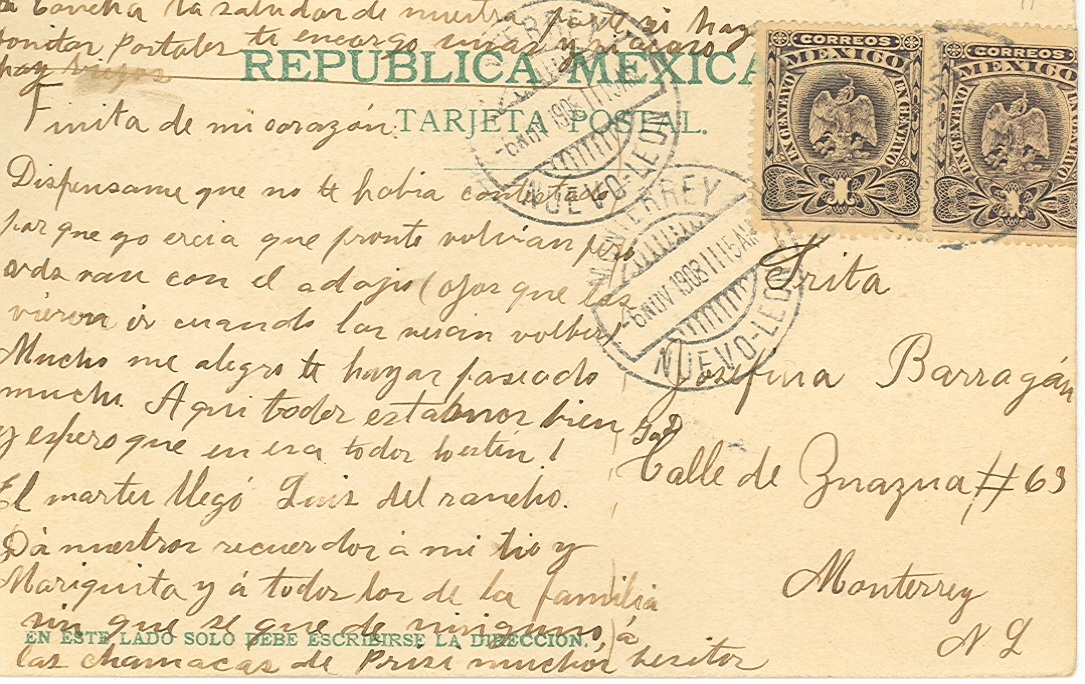 á Concha la saludas de nuestra parte si hay
bonitas postales te encargo unas y si acaso
hay
REPUBLICA MEXICA
TARJETA POSTAL.
Finita de mi corazón:
Dispensame que no te habia contestado
por que yo creia que pronto volvian pero
van con el adagio (ojos que los
vieron ir cuando los veian volber)
Mucho me alegro te hayas paseado
mucho. Aqui todos estabmos bien
y espero que en esa todos lo esten!
El martes llegó Luis del rancho.
Dá nuestros recuerdos á mi tio y
Mariquita y á todos los de la familia
sin que se que de ninguno, á
las chamacas de Prisi muchos besitos
EN ESTE LADO SOLO DEBE ESCRIBIRSE LA DIRECCION.
CORREOS
MEXICO
UN CENTAVO UN CENTAVO
CORREOS
MEXICO
UN CENTAVO UN CENTAVO
MONTERREY
-6 NOV 1908 11 15 AM
NUEVO-LEON
MONTERREY
-6 NOV 1908 11 15 AM
NUEVO-LEON
Srita
Josefina Barragán
Calle de Zuazua, #63
Monterrey
N L